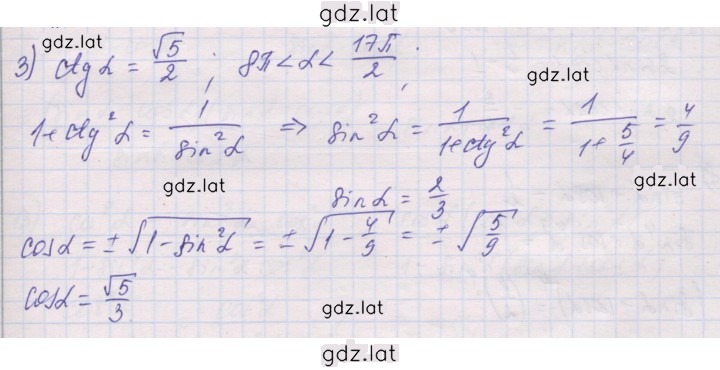 gdz.lat
gdz.lat
3) ctg α = √5/2 ; 8π < α < 17π/2 ;
gdz.lat
1 + ctg²α = 1/sin²α ⇒ sin²α = 1/(1+ctg²α) = 1/(1+5/4) = 4/9
gdz.lat
gdz.lat
sin α = 2/3
cosα = ±√(1-sin²α) = ±√(1-4/9) = ±√(5/9)
cosα = √5/3
gdz.lat
gdz.lat